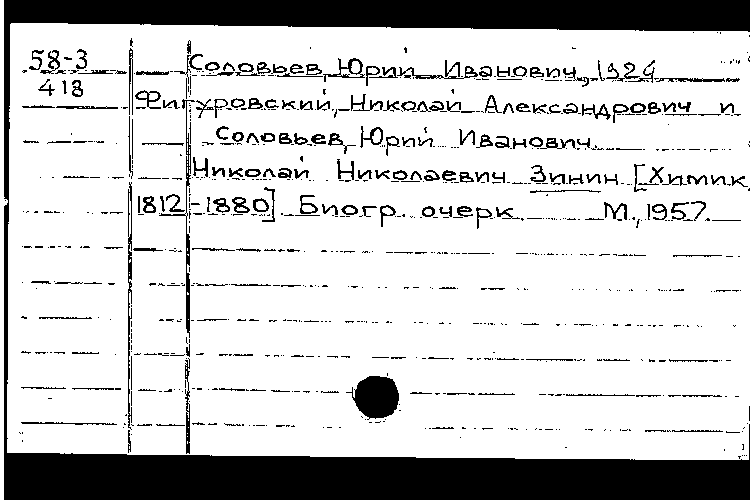 58-3 Соловьев, Юрий Иванович, 1924
413 Фигуровский, Николай Александрович и
Соловьев, Юрий Иванович.
Николай Николаевич Зинин [Химик,
1812-1880]. Биогр. очерк. М., 1957.